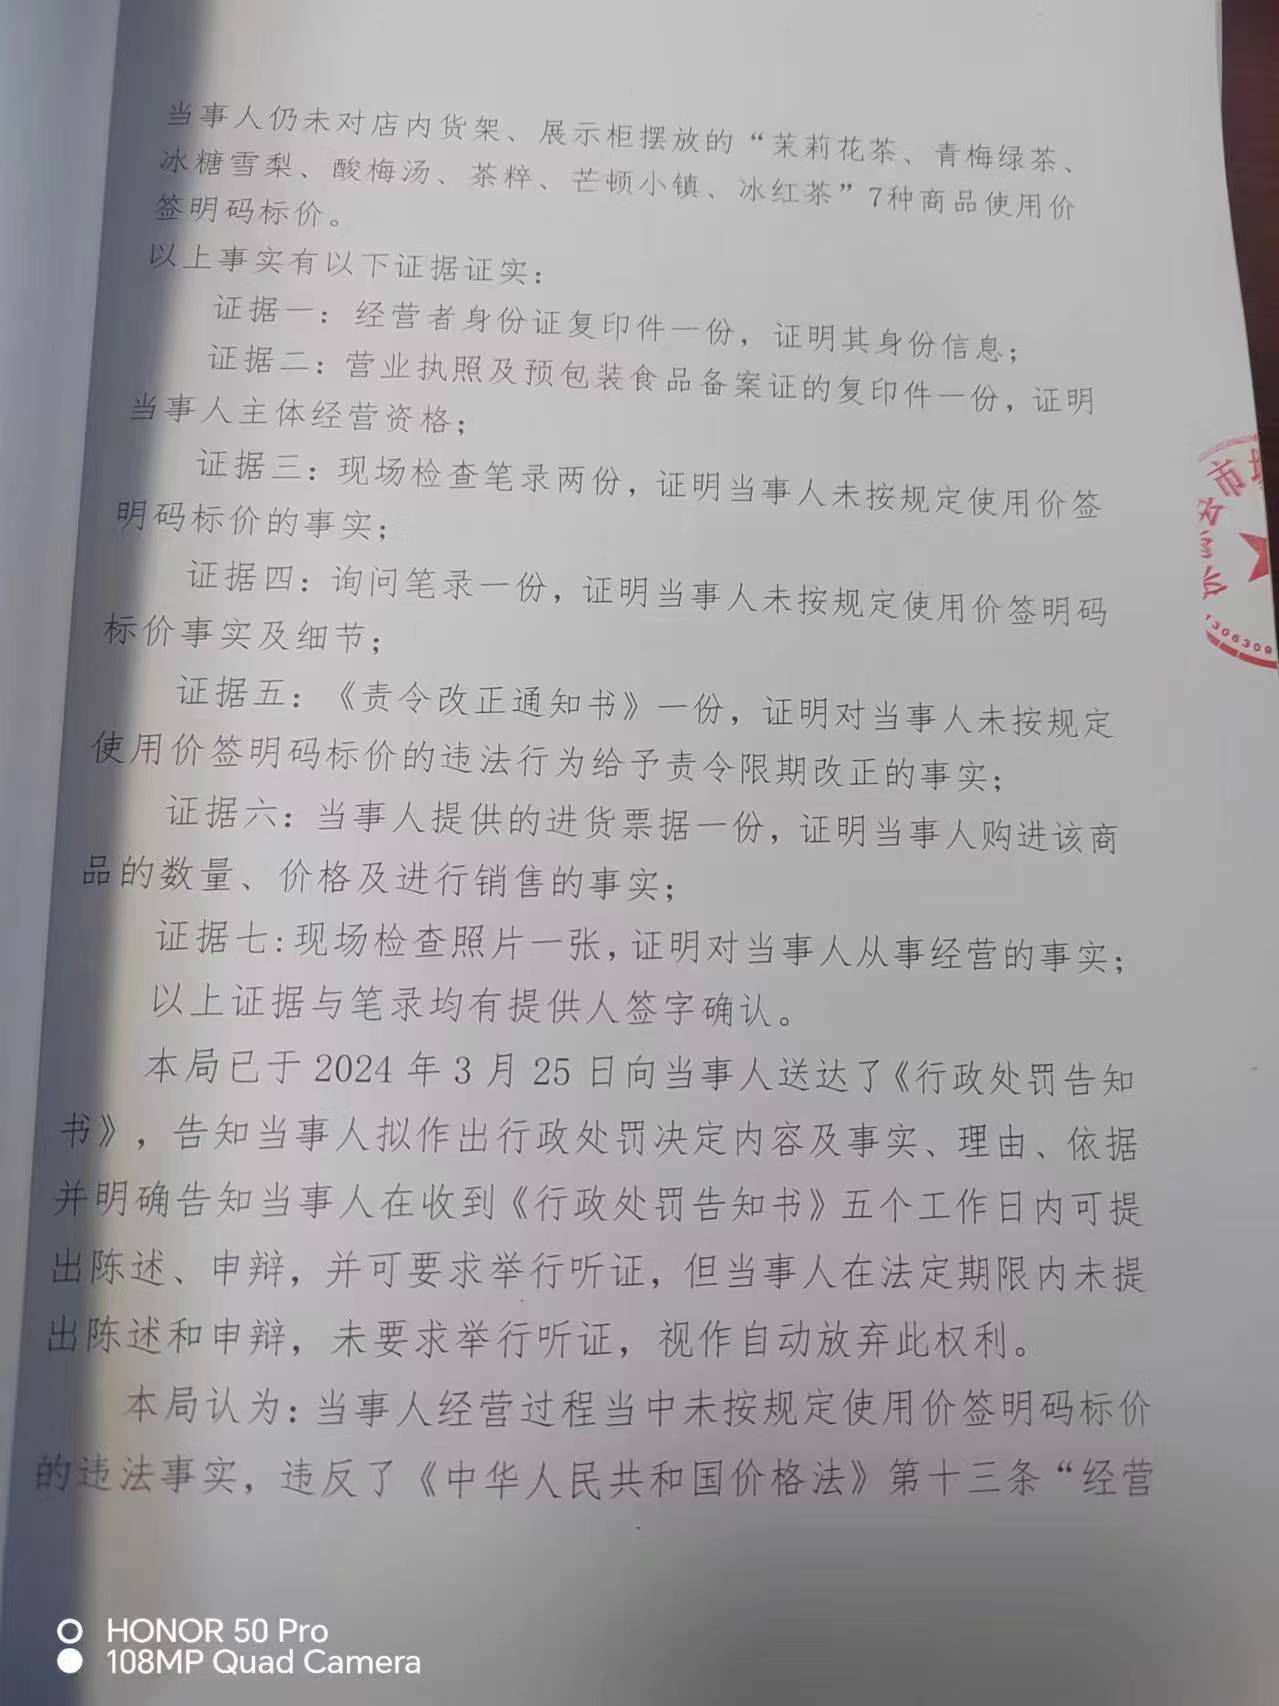 当事人仍未对店内货架、展示柜摆放的“茉莉花茶、青梅绿茶、
冰糖雪梨、酸梅汤、茶粹、芒顿小镇、冰红茶”7种商品使用价
签明码标价。
以上事实有以下证据证实：
证据一：经营者身份证复印件一份，证明其身份信息；
证据二：营业执照及预包装食品备案证的复印件一份，证明
当事人主体经营资格；
证据三：现场检查笔录两份，证明当事人未按规定使用价签
明码标价的事实；
证据四：询问笔录一份，证明当事人未按规定使用价签明码
标价事实及细节；
证据五：《责令改正通知书》一份，证明对当事人未按规定
使用价签明码标价的违法行为给予责令限期改正的事实；
证据六：当事人提供的进货票据一份，证明当事人购进该商
品的数量、价格及进行销售的事实；
证据七：现场检查照片一张，证明对当事人从事经营的事实；
以上证据与笔录均有提供人签字确认。
本局已于 2024 年 3 月 25 日向当事人送达了《行政处罚告知
书》，告知当事人拟作出行政处罚决定内容及事实、理由、依据
并明确告知当事人在收到《行政处罚告知书》五个工作日内可提
出陈述、申辩，并可要求举行听证，但当事人在法定期限内未提
出陈述和申辩，未要求举行听证，视作自动放弃此权利。
本局认为：当事人经营过程当中未按规定使用价签明码标价
的违法事实，违反了《中华人民共和国价格法》第十三条“经营
市场
1306309
HONOR 50 Pro
108MP Quad Camera